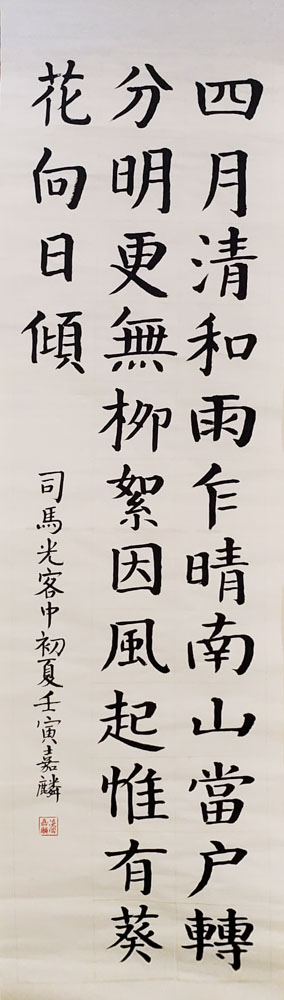 四月清和雨乍晴南山當户轉
分明更無柳絮因風起惟有葵
花向日傾
司馬光客中初夏壬寅嘉麟